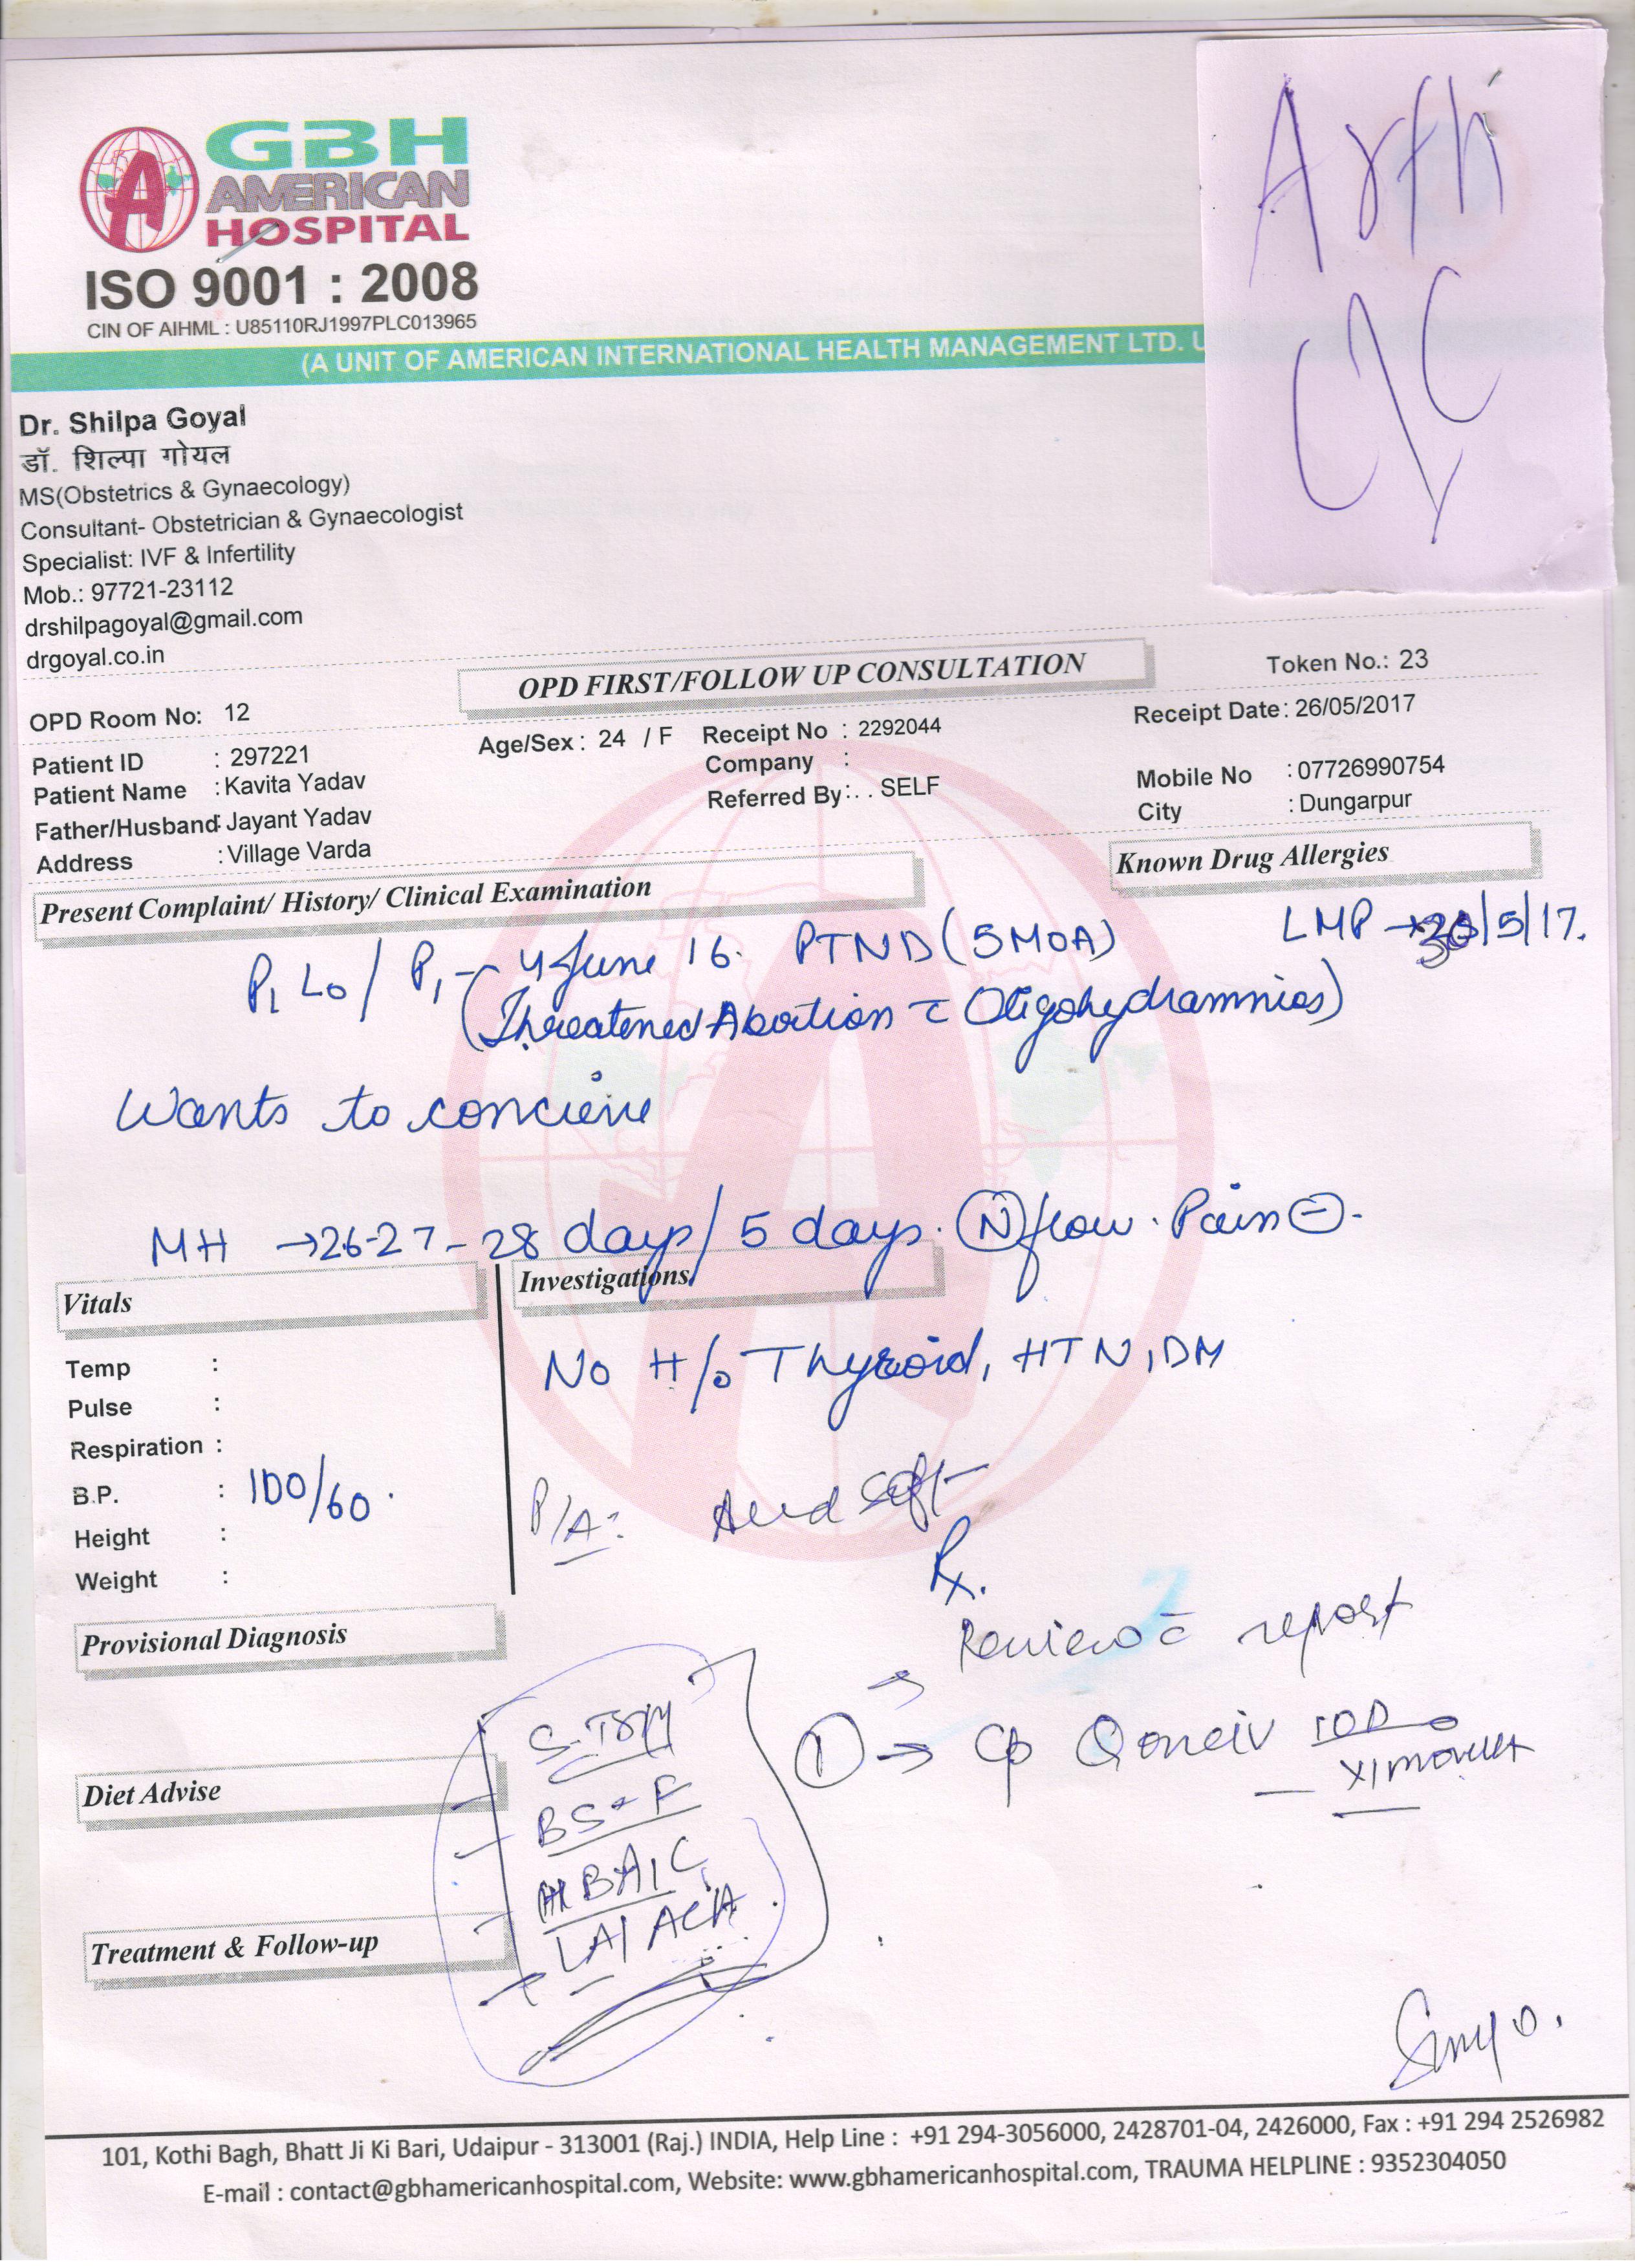 GBH
AMERICAN
HOSPITAL
ISO 9001 : 2008
CIN OF AIHML : U85110RJ1997PLC013965
(A UNIT OF AMERICAN INTERNATIONAL HEALTH MANAGEMENT LTD. U
Arth
Dr. Shilpa Goyal
डॉ. शिल्पा गोयल
MS(Obstetrics & Gynaecology)
Consultant- Obstetrician & Gynaecologist
Specialist: IVF & Infertility
Mob.: 97721-23112
drshilpagoyal@gmail.com
drgoyal.co.in
OPD FIRST/FOLLOW UP CONSULTATION
Token No.: 23
OPD Room No: 12
Age/Sex : 24 / F Receipt No : 2292044
Receipt Date: 26/05/2017
Patient ID : 297221
Company :
Mobile No : 07726990754
Patient Name : Kavita Yadav
Referred By:. . SELF
City : Dungarpur
Father/Husband: Jayant Yadav
Address : Village Varda
Known Drug Allergies
Present Complaint/ History/ Clinical Examination
LMP → /5/17.
P1 L0 / P1 - 4 June 16. PTND (5 MOA)
(Threatened Abortion c Oligohydramnios)
Wants to concieve
MH → 26-27-28 days/ 5 days. N flow. Pain ⊖.
Vitals
Investigations
Temp :
Pulse :
Respiration :
B.P. : 100/60.
Height :
Weight :
No H/o Thyroid, HTN, DM
P/A: soft
Rx.
Provisional Diagnosis
Review c report
S. TSH
1 → Cp Qonciv 1OD
BS-F
Diet Advise
HBA1C
LA/ACA
Treatment & Follow-up
101, Kothi Bagh, Bhatt Ji Ki Bari, Udaipur - 313001 (Raj.) INDIA, Help Line : +91 294-3056000, 2428701-04, 2426000, Fax : +91 294 2526982
E-mail : contact@gbhamericanhospital.com, Website: www.gbhamericanhospital.com, TRAUMA HELPLINE : 9352304050